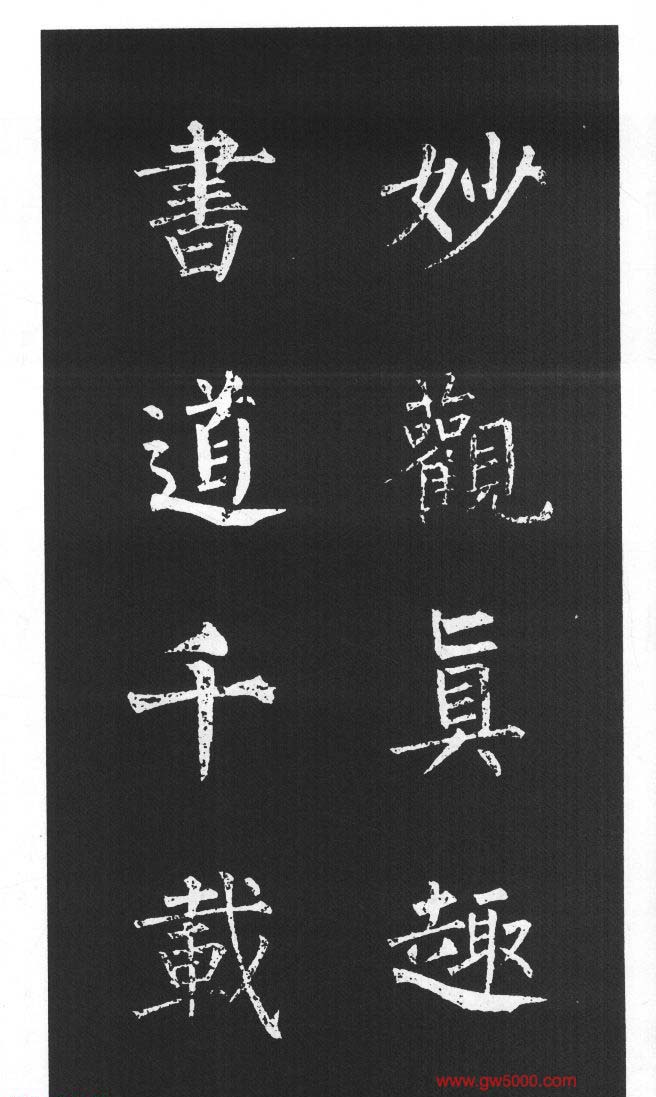 妙觀眞趣
書道千載
www.gw5000.com